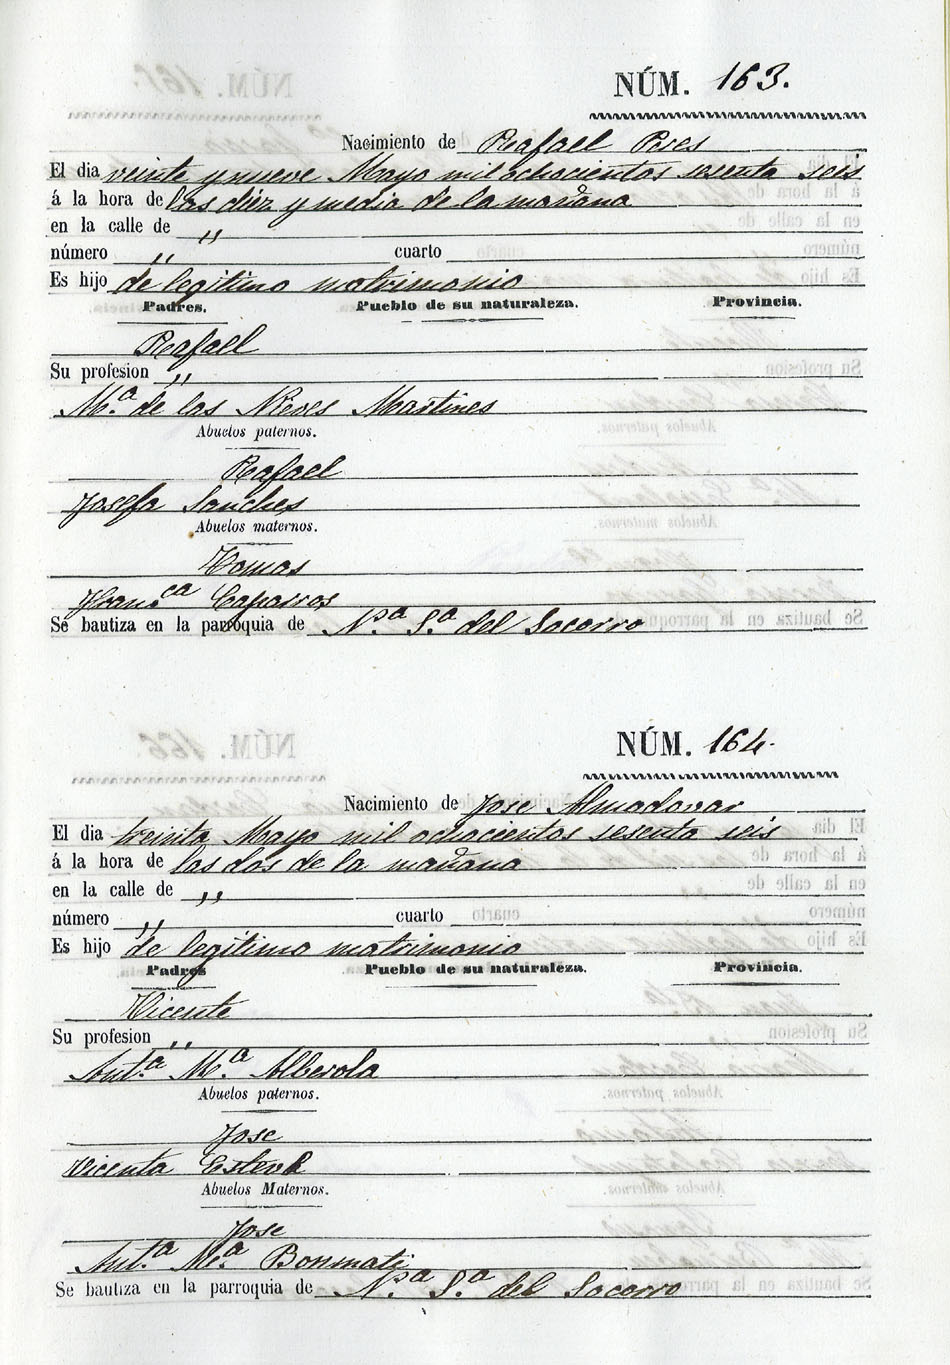 NÚM. 163.
Nacimiento de Rafael Peres
El dia veinte y nueve Mayo mil ochocientos sesenta seis
á la hora de las diéz y media de la mañana
en la calle de "
número " cuarto
Es hijo de legitimo matrimonio
Padres. Pueblo de su naturaleza. Provincia.
Rafael
Su profesion "
Mª. de las Nieves Martines
Abuelos paternos.
Rafael
Josefa Sanches
Abuelos maternos.
Tomas
Fran.ca Caparros
Se bautiza en la parroquia de Nª Sª del Socorro
NÚM. 164.
Nacimiento de Jose Almodovar
El dia treinta Mayo mil ochocientos sesenta seis
á la hora de las dos de la mañana
en la calle de "
número " cuarto
Es hijo de legitimo matrimonio
Padres Pueblo de su naturaleza. Provincia.
Vicente
Su profesion "
Ant.a Mª Alberola
Abuelos paternos.
Jose
Vicenta Esteve
Abuelos Maternos.
Jose
Ant.a Mª Bonmati
Se bautiza en la parroquia de Nª Sª del Socorro